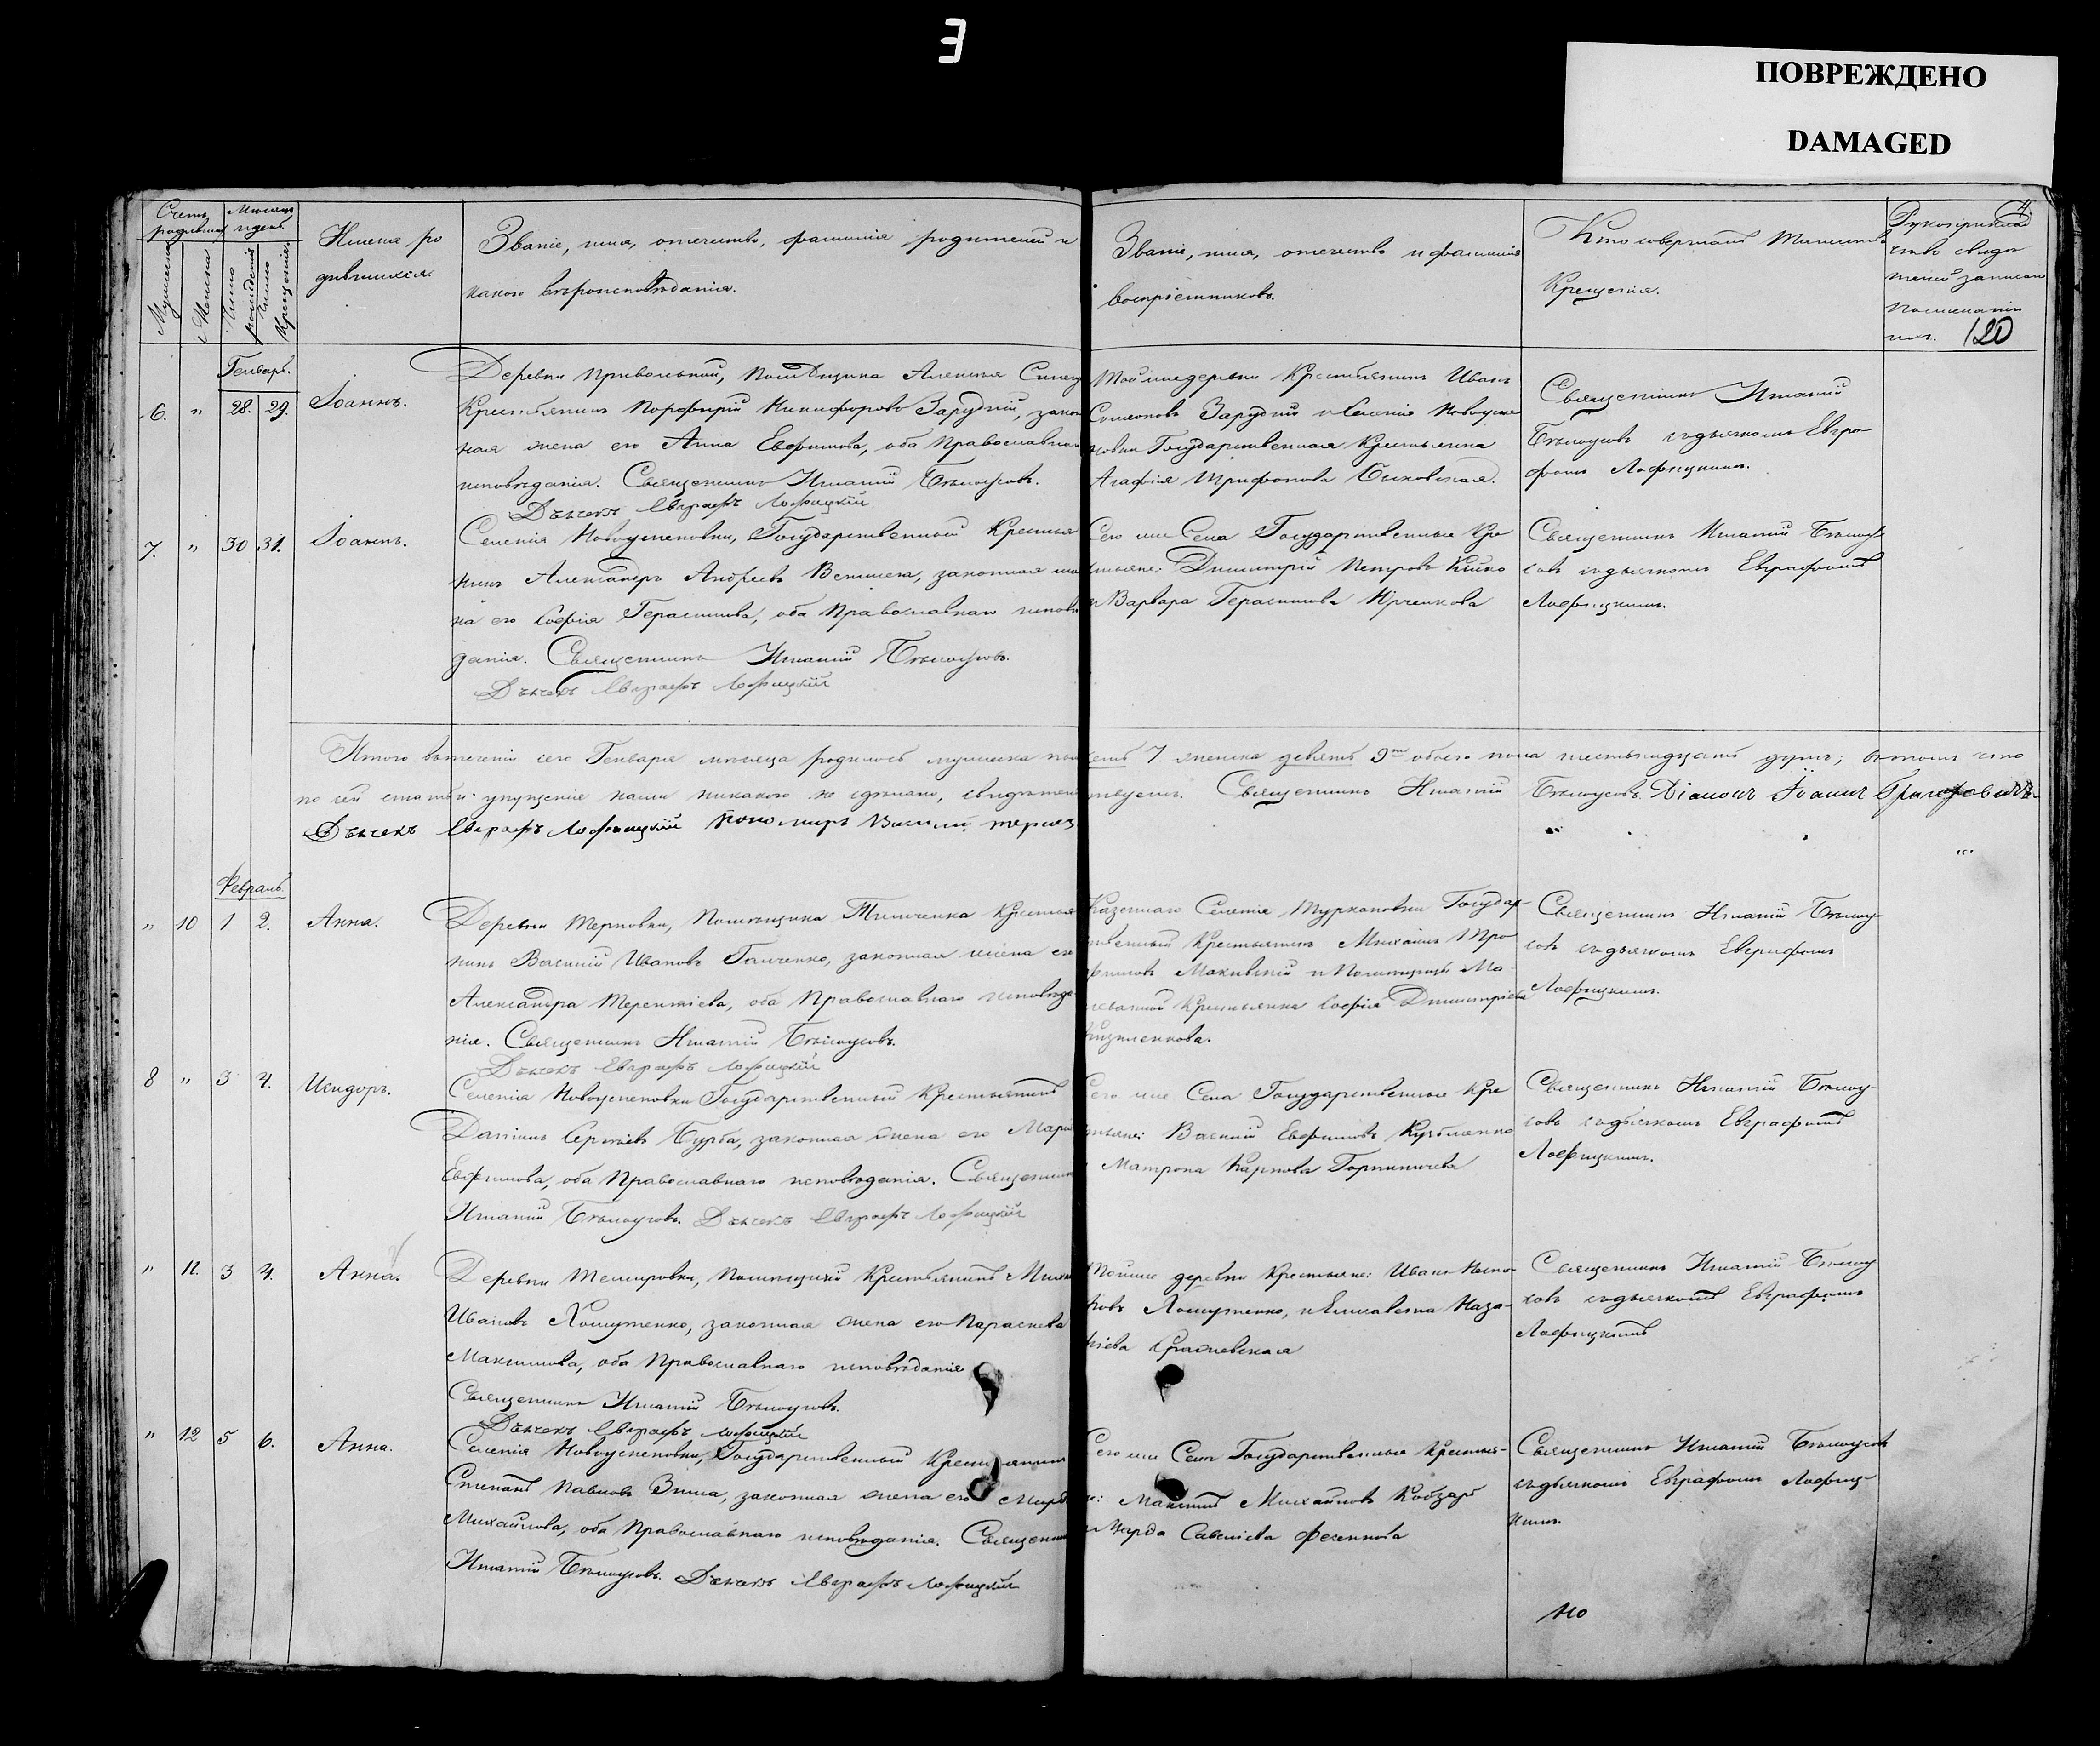 3
ПОВРЕЖДЕНО
DAMAGED
4
120
Счетъ родившихся
Мѣсяцъ и день
Мужеска
Женска
Число рожденія
Число Крещенія
Имена ро
дившихся
Званіе, имя, отечество, фамилія родителей и
какого вѣроисповѣданія.
Званіе, имя, отечество и фамилія
воспріемниковъ.
Кто совершалъ таинство
Крещенія.
Рукоприклад
ство свидѣ
телей записи
по желанію
ихъ.
Генварь.
6. " 28. 29.
Іоаннъ.
Деревни Привольной, Помѣщика Алексея
Крестьянинъ Порфирій Никифоровъ Зарудній, закон
ная жена его Анна Евфимова, оба Православнаго
исповѣданія. Священникъ Игнатій Бѣлоусовъ.
Дьячекъ Евграфъ Лофицкій
Той же деревни Крестьянинъ Иванъ
Симеоновъ Зарудній и Селенія Новоуспе
новки Государственная Крестьянка
Агафія Трифонова Быковская.
Священникъ Игнатій
Бѣлоусовъ съ дьячкомъ Евгра-
фомъ Лофицкимъ.
7. " 30 31.
Іоаннъ.
Селенія Новоуспеновки, Государственный Крестья
нинъ Александръ Андреевъ, законная же
на его Софія Герасимова, оба Православнаго исповѣ
данія. Священникъ Игнатій Бѣлоусовъ.
Дьячекъ Евграфъ Лофицкій
Сего же Села Государственные Кре
стьяне: Димитрій Петровъ
и Варвара Герасимова Юрченкова
Священникъ Игнатій Бѣлоу
совъ съ дьячкомъ Евграфомъ
Лофицкимъ.
Итого въ теченіи сего Генваря мѣсяца родилось мужеска пола семь 7 женска девять 9 обоего пола шестьнадцать душъ; въ томъ что
по сей статьи упущенія нами никакого не сдѣлано, свидѣтельствуемъ. Священникъ Игнатій Бѣлоусовъ. Діаконъ Іоаннъ Григоровичъ.
Дьячекъ Евграфъ Лофицкій пономарь Василій
Февраль.
" 10 1 2.
Анна.
Деревни Терновки, Помѣщика Тимченка Крестья
нинъ Василій Ивановъ Ганченко, законная жена его
Александра Терентіева, оба Православнаго исповѣда
нія. Священникъ Игнатій Бѣлоусовъ.
Дьячекъ Евграфъ Лофицкій
Казеннаго Селенія Туркеновки Государ-
ственный Крестьянинъ Михаилъ Тро
фимовъ Макивскій и Помѣщицы Ма-
Крестьянка Софія Димитріева
Священникъ Игнатій Бѣлоу
совъ съ дьячкомъ Евграфомъ
Лофицкимъ.
8 " 3 4.
Исидоръ.
Селенія Новоуспеновки Государственный Крестьянинъ
Даніилъ Сергіевъ Бурба, законная жена его Марія
Евфимова, оба Православнаго исповѣданія. Священникъ
Игнатій Бѣлоусовъ. Дьячекъ Евграфъ Лофицкій
Сего же Села Государственные Кре
стьяне: Василій Евфимовъ Кузьменко
Матрона Карпова
Священникъ Игнатій Бѣлоу-
совъ съ дьячкомъ Евграфомъ
Лофицкимъ.
" 11. 3 4.
Анна.
Деревни Темировки, Помѣщичій Крестьянинъ
Ивановъ Хошутенко, законная жена его Параскева
Максимова, оба Православнаго исповѣданія
Священникъ Игнатій Бѣлоусовъ.
Дьячекъ Евграфъ Лофицкій
Той же деревни Крестьяне: Иванъ
и Елисавета Наза-
Священникъ Игнатій Бѣлоу
совъ съ дьячкомъ Евграфомъ
Лофицкимъ
" 12 5 6.
Анна.
Селенія Новоуспеновки, Государственный Крестьянинъ
Степанъ Павловъ, законная жена его
Михайлова, оба Православнаго исповѣданія. Священникъ
Игнатій Бѣлоусовъ. Дьячекъ Евграфъ Лофицкій
Сего же Села Государственные Крестья-
не: Максимъ Михайловъ Кобзарь
Савеліева
Священникъ Игнатій Бѣлоусовъ
съ дьячкомъ Евграфомъ Лофиц-
кимъ.